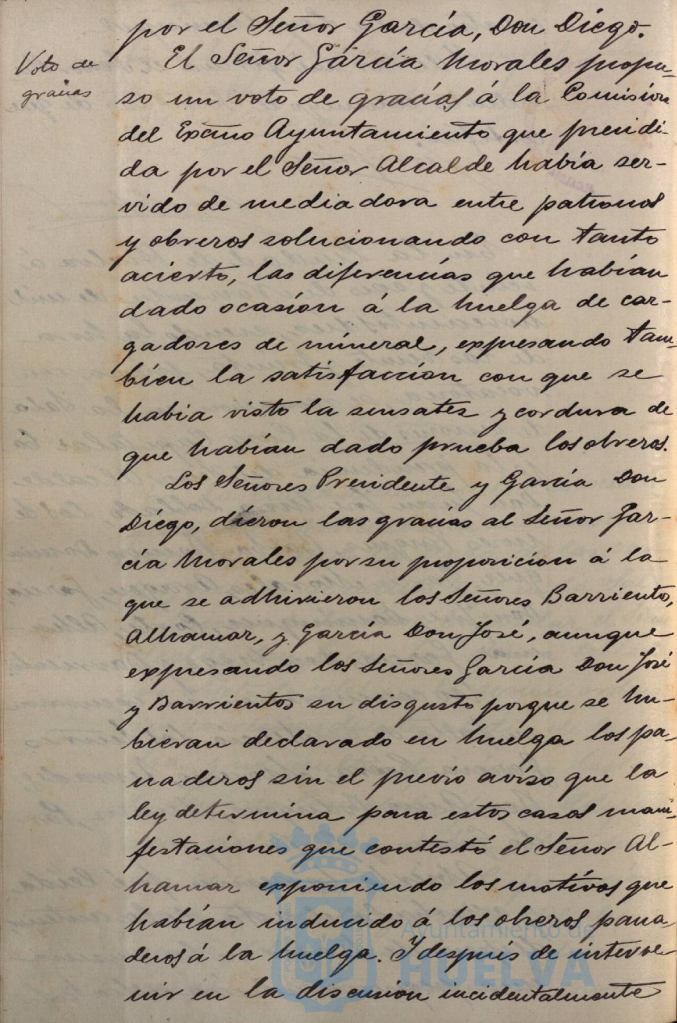 por el Señor García, Don Diego.
Voto de
gracias
El Señor García Morales propu-
so un voto de gracias á la Comisión
del Excmo Ayuntamiento que presidi-
da por el Señor Alcalde había ser-
vido de mediadora entre patronos
y obreros solucionando con tanto
acierto, las diferencias que habían
dado ocasión á la huelga de car-
gadores de mineral, expresando tam-
bien la satisfacción con que se
habia visto la sensatez y cordura de
que habían dado prueba los obreros.
Los Señores Presidente y García Don
Diego, dieron las gracias al Señor Gar-
cía Morales por su proposicion á la
que se adhirieron los Señores Barriento,
Alhamar, y García Don José, aunque
expresando los Señores García Don José
y Barrientos su disgusto porque se hu-
bieran declarado en huelga los pa-
naderos sin el previo aviso que la
ley determina para estos casos mani
festaciones que contestó el Señor Al-
hamar exponiendo los motivos que
habían inducido á los obreros pana-
deros á la huelga. Y después de interve
nir en la discusion incidentalmente
Ayuntamiento de
HUELVA